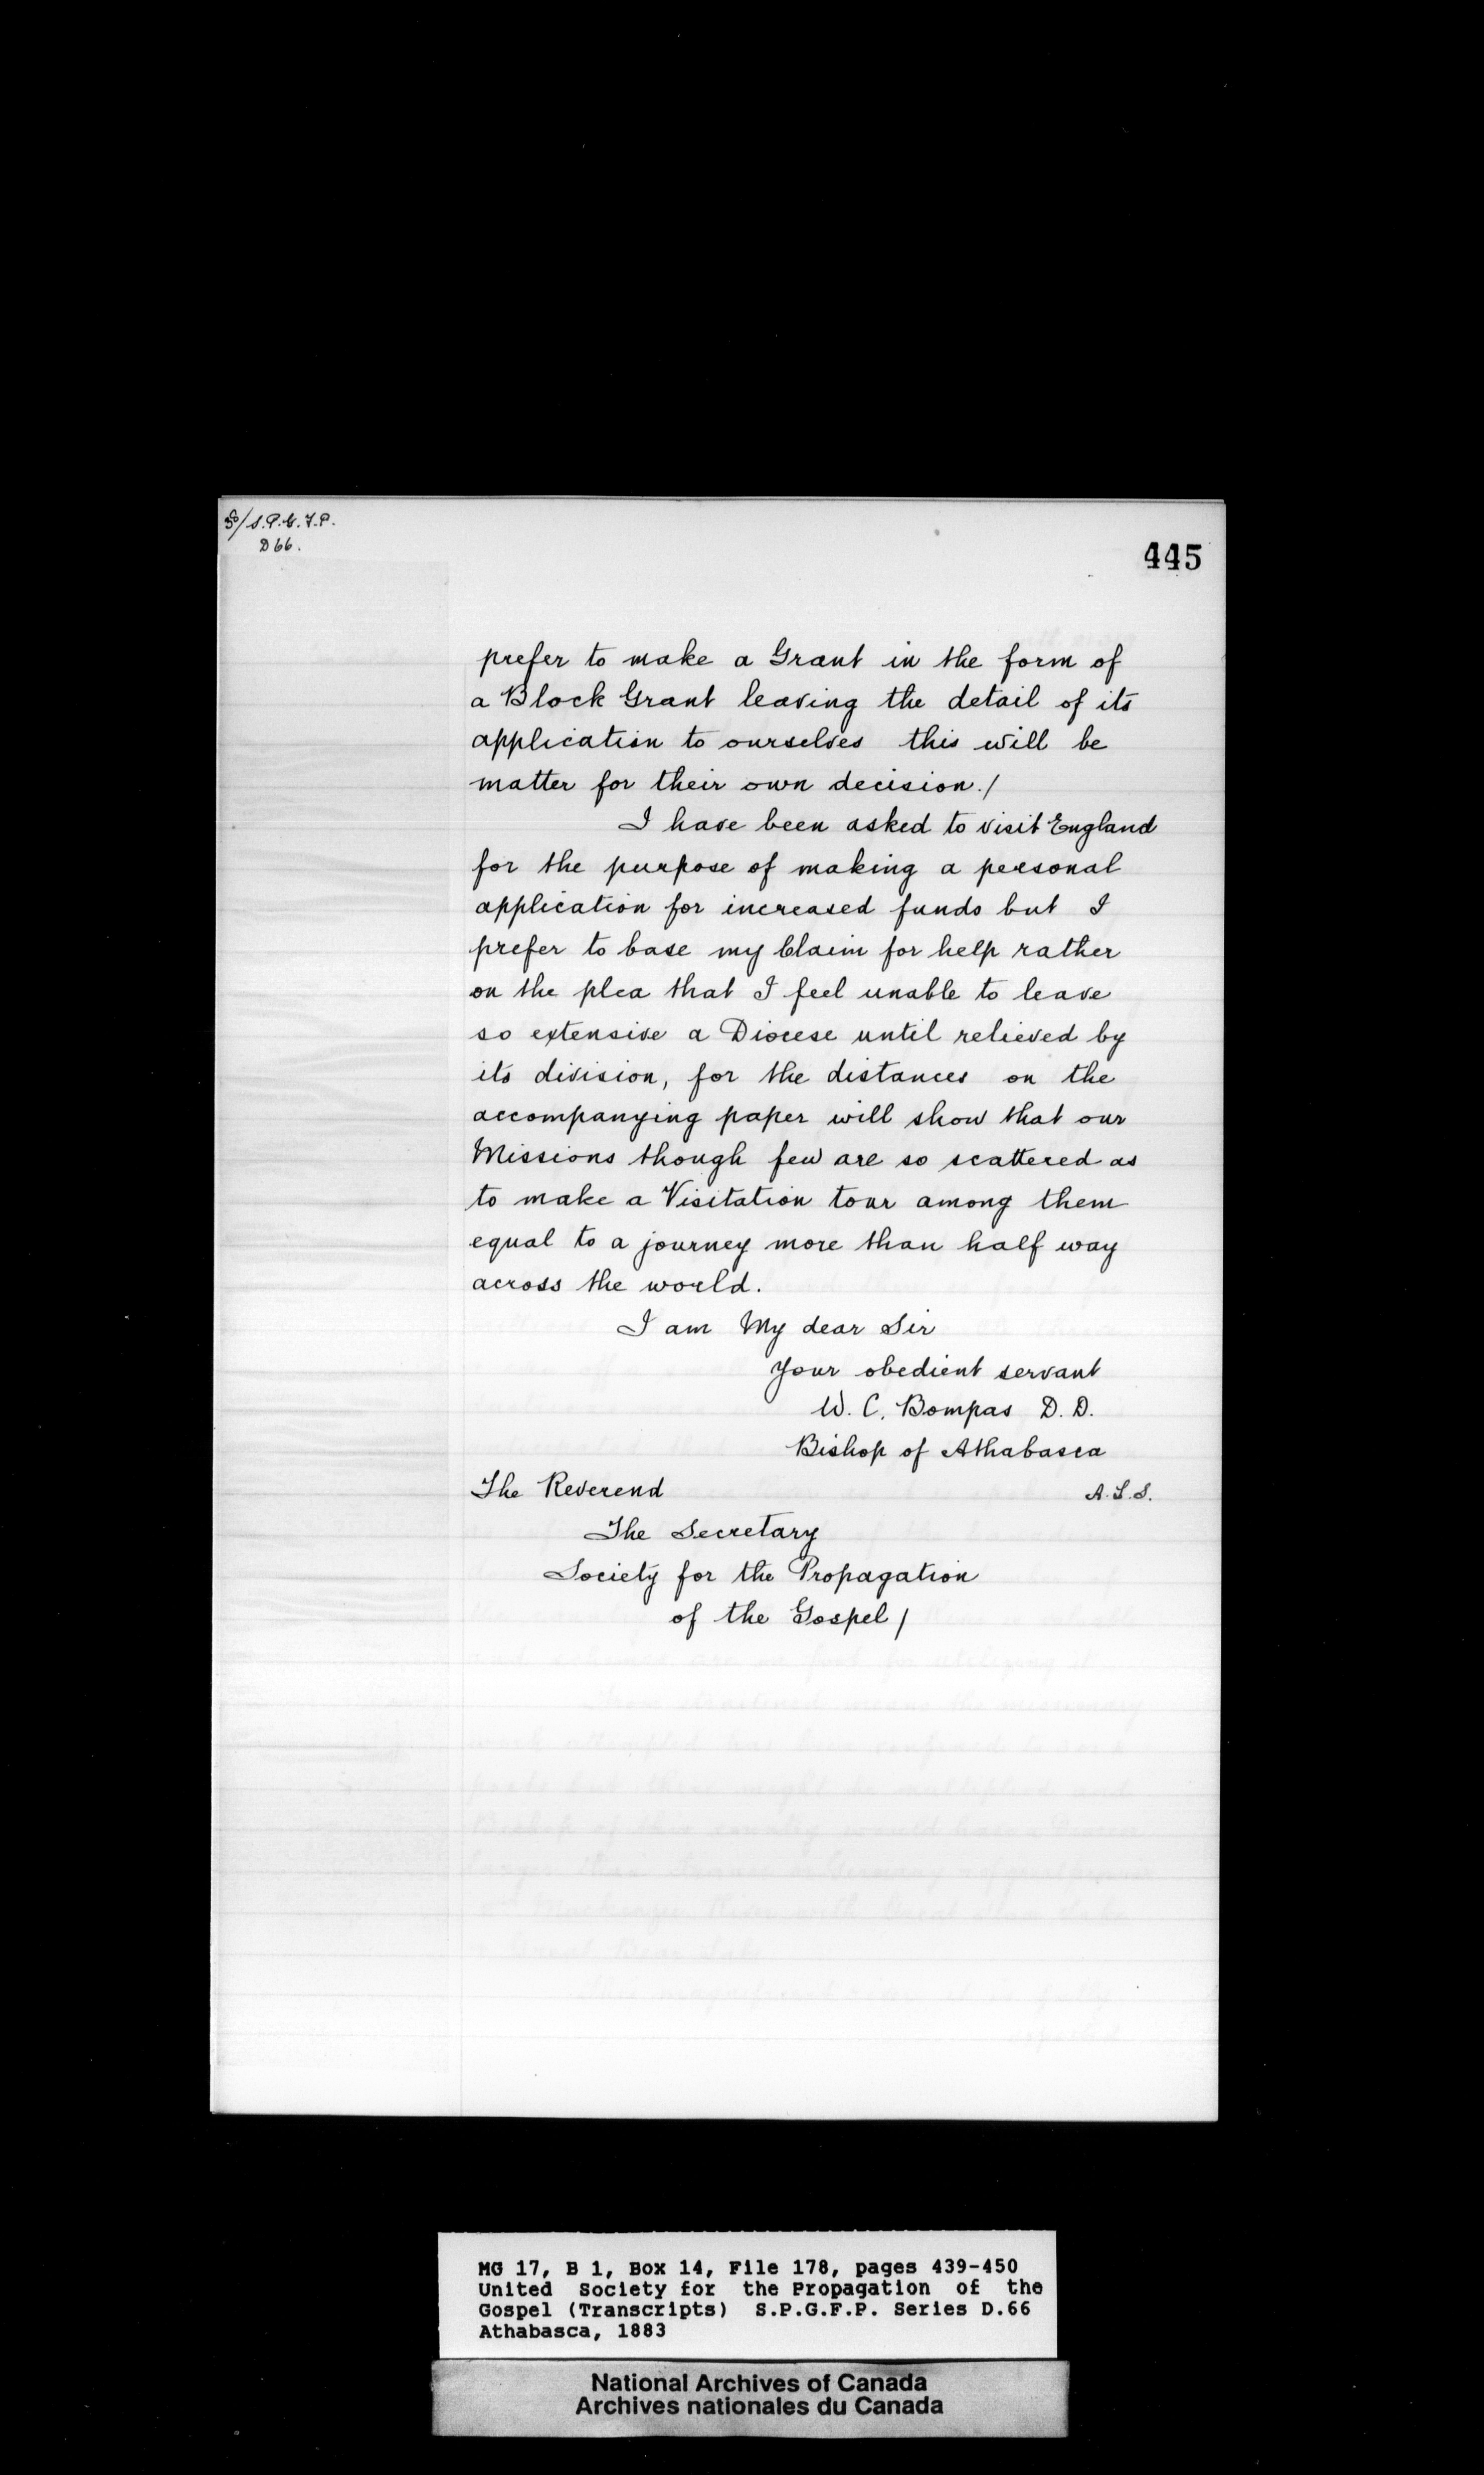 S.P.G.F.P.
D 66.
445
prefer to make a Grant in the form of
a Block Grant leaving the detail of its
application to ourselves this will be
matter for their own decision./
I have been asked to visit England
for the purpose of making a personal
application for increased funds but I
prefer to base my Claim for help rather
on the plea that I feel unable to leave
so extensive a Diocese until relieved by
its division, for the distances on the
accompanying paper will show that our
Missions though few are so scattered as
to make a Visitation tour among them
equal to a journey more than half way
across the world.
I am My dear Sir
Your obedient servant
W. C. Bompas D. D.
Bishop of Athabasca
The Reverend
A.L.S.
The Secretary
Society for the Propagation
of the Gospel /
MG 17, B 1, Box 14, File 178, pages 439-450
United Society for the Propagation of the
Gospel (Transcripts) S.P.G.F.P. Series D.66
Athabasca, 1883
National Archives of Canada
Archives nationales du Canada